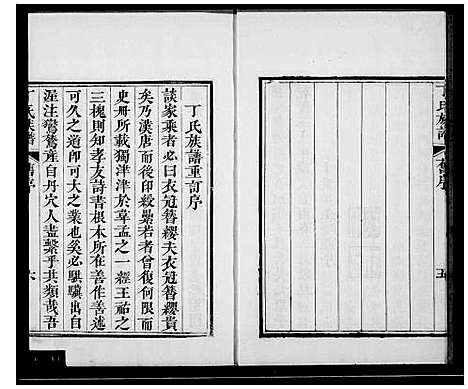 丁氏族譜
舊序
五
丁氏族譜重訂序
談家乘者必曰衣冠簪纓夫衣冠簪纓貴
矣乃漢唐而後印殺纍若者曾復何限而
史冊所載獨津津於韋孟之一經王祐之
三槐則知孝友詩書根本所在善作善述
可久之道即可大之業也奚必騏驥出自
渥注鸑鷟產自丹穴人盡繫乎其類哉吾
丁氏族譜
舊序
六